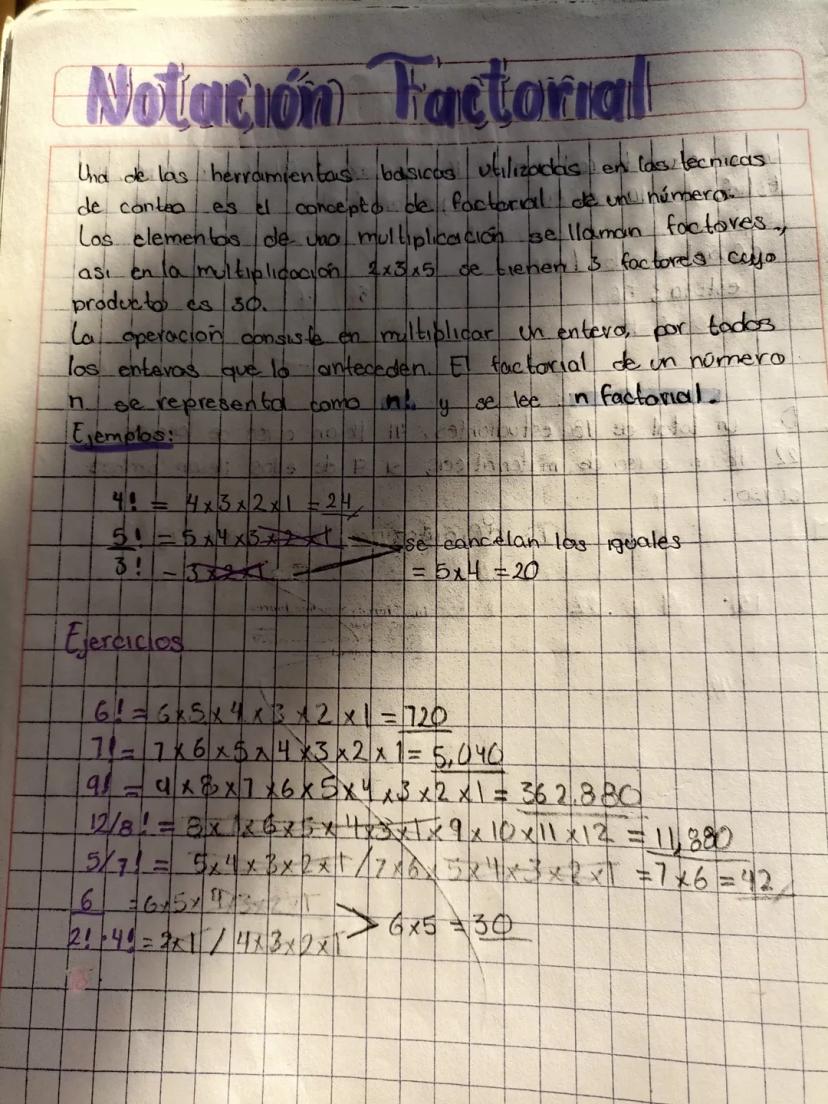 Notación Factorial
Una de las herramientas basicas utilizadas en las tecnicas
de conteo es el concepto de factorial de un número.
Los elementos de una multiplicación se llaman factores,
asi en la multiplicación 2x3x5 se tienen 3 factores cuyo
producto es 30.
La operacion consiste en multiplicar un entero, por todos
los enteros que lo anteceden. El factorial de un número
n se representa como n! y se lee n factorial.
Ejemplos:
4! = 4x3x2x1 = 24
5! = 5x4x3x2x1 = se cancelan los iguales
3! = 3x2x1 = = 5x4 = 20
Ejercicios
6! = 6x5x4x3x2x1 = 720
7! = 7x6x5x4x3x2x1 = 5,040
9! = 9x8x7x6x5x4x3x2x1 = 362.880
12/8! = 8x7x6x5x4x3x1x9x10x11x12 = 11,880
5/7! = 5x4x3x2x1/7x6x5x4x3x2x1 = 7x6 = 42
6 = 6x5x4x3x2x1
> 6x5 = 30
2!·4! = 2x1 / 4x3x2x1